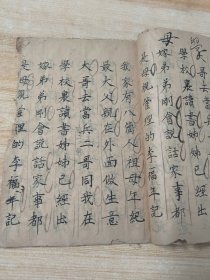 學校裏讀書姊姊已經出
嫁弟弟剛會說話家事都
是母親管理的李福年記
我家有八個人祖母年紀
最大父親在外面做生意
大哥去當兵二哥同我在
學校裏讀書姊姊已經出
嫁弟弟剛會說話家事都
是母親管理的李福年記